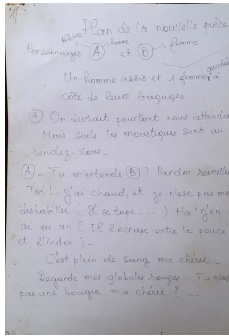 Plan de la nouvelle pièce
homme
Personnages (A) et (B) femme
Un homme assis et 1 femme à
côté de leurs bagages
On devrait pourtant nous attendre
Mais seuls les moustiques sont au
rendez-vous.
(A) - Tu m'entends (B) ? Pardon réveille
Toi ! j'ai chaud, et je n'ose pas me
déshabiller (Il se tape ....) Ha ! j'en
ai eu un (Il l'écrase entre le pouce
et l'index) -
C'est plein de sang ma chérie -
Regarde mes globules rouges - Tu n'as
pas une bougie ma chérie ? - ..